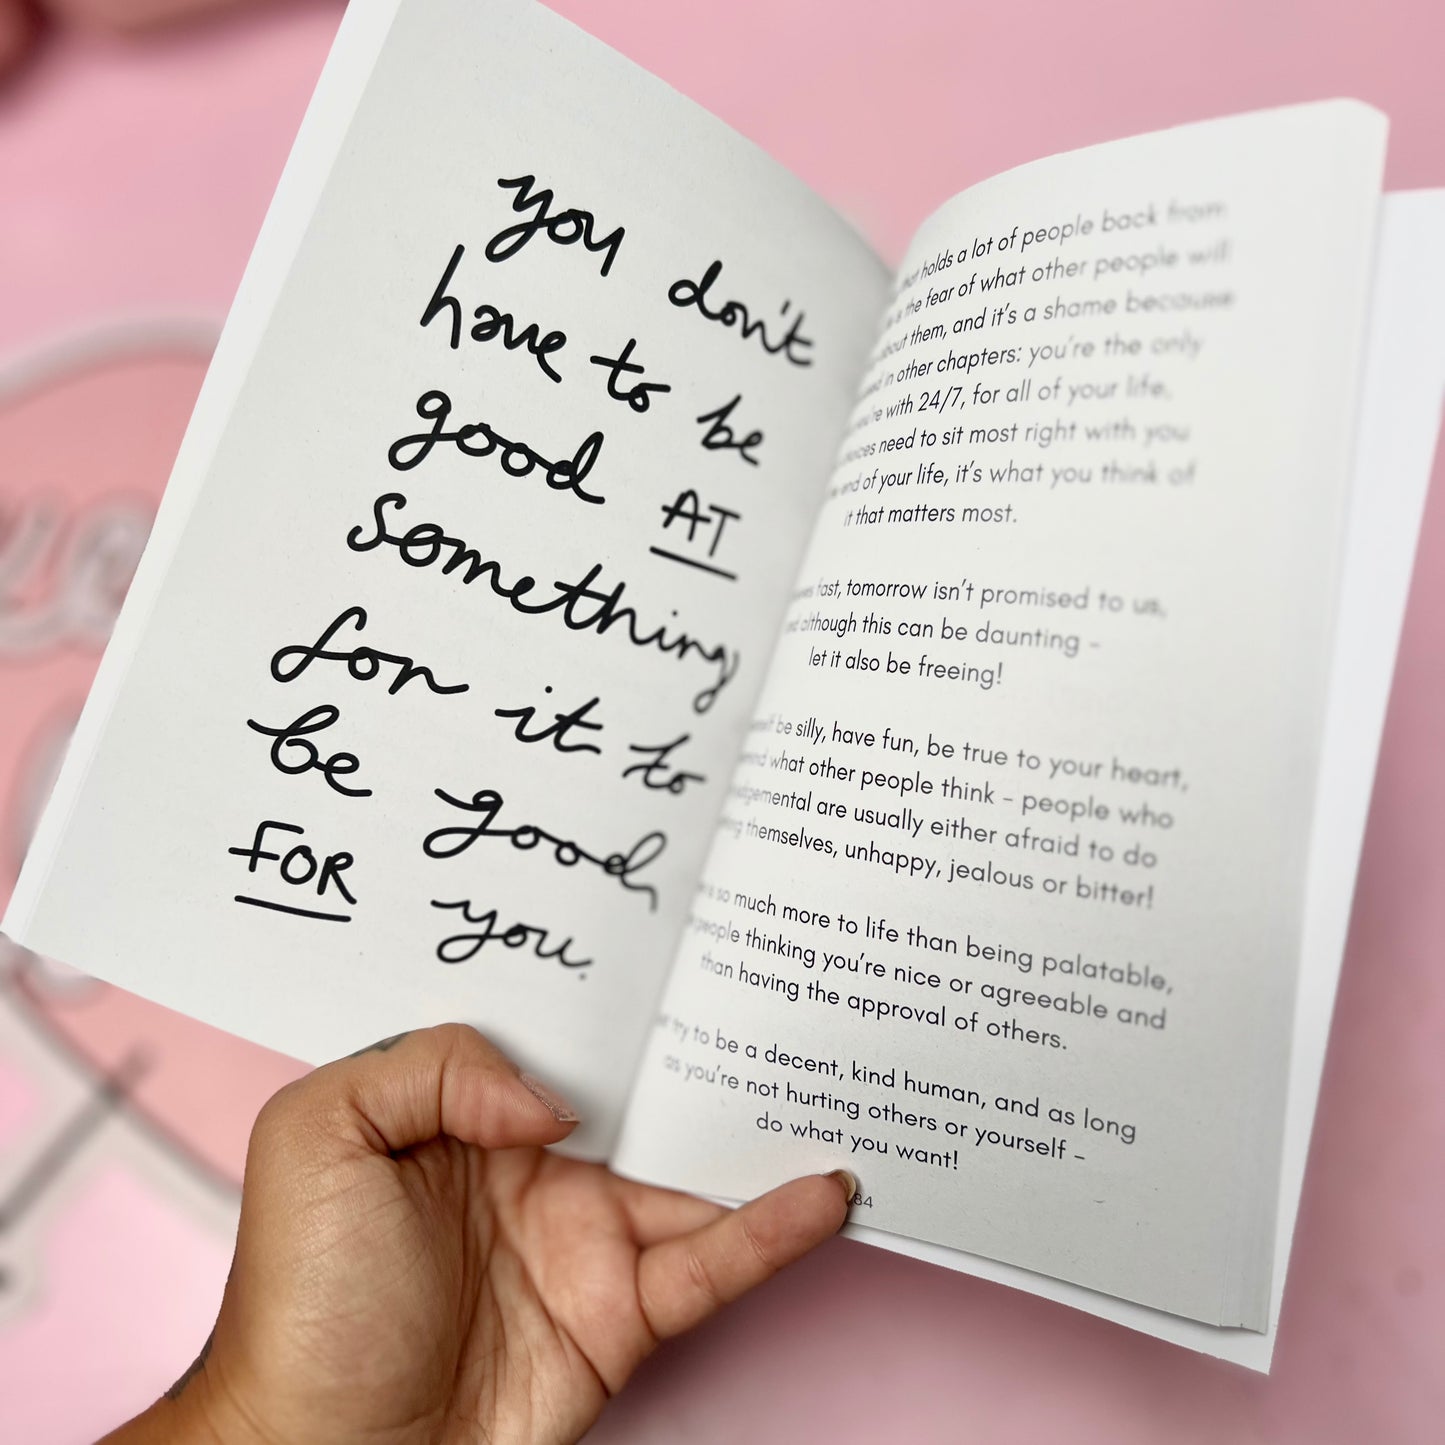 you don't
have to be
good AT
something
for it to
be good
FOR you.
that holds a lot of people back from
is the fear of what other people will
about them, and it's a shame because
in other chapters: you're the only
you're with 24/7, for all of your life,
choices need to sit most right with you
end of your life, it's what you think of
it that matters most.
fast, tomorrow isn't promised to us,
and although this can be daunting –
let it also be freeing!
be silly, have fun, be true to your heart,
what other people think – people who
judgemental are usually either afraid to do
themselves, unhappy, jealous or bitter!
is so much more to life than being palatable,
people thinking you're nice or agreeable and
than having the approval of others.
try to be a decent, kind human, and as long
as you're not hurting others or yourself –
do what you want!
84